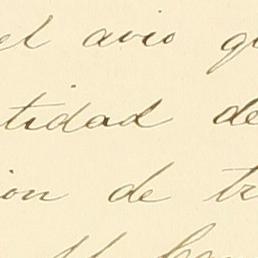 el avio q
tidad de
ion de tr